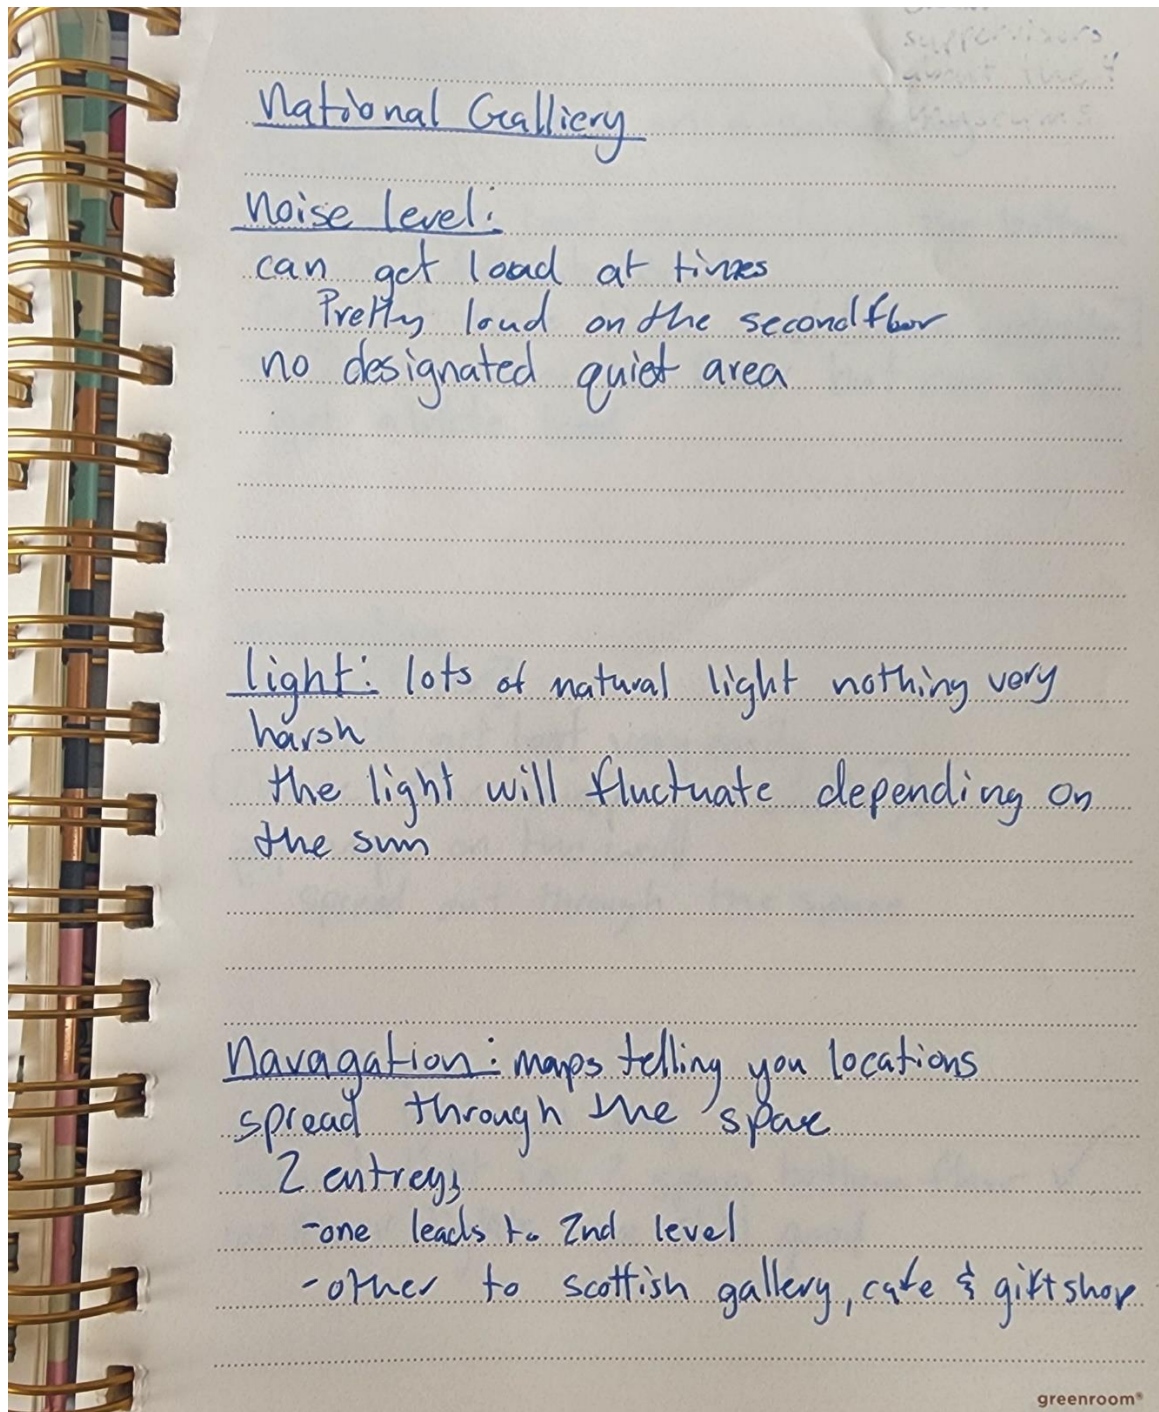 National Galliery
Noise level:
can get load at times
Pretty loud on the second floor
no designated quiet area
light: lots of natural light nothing very
harsh
the light will fluctuate depending on
the sun
Navagation: maps telling you locations
spread through the space
2 entreys
-one leads to 2nd level
-other to scottish gallery, cafe & giftshop
greenroom®